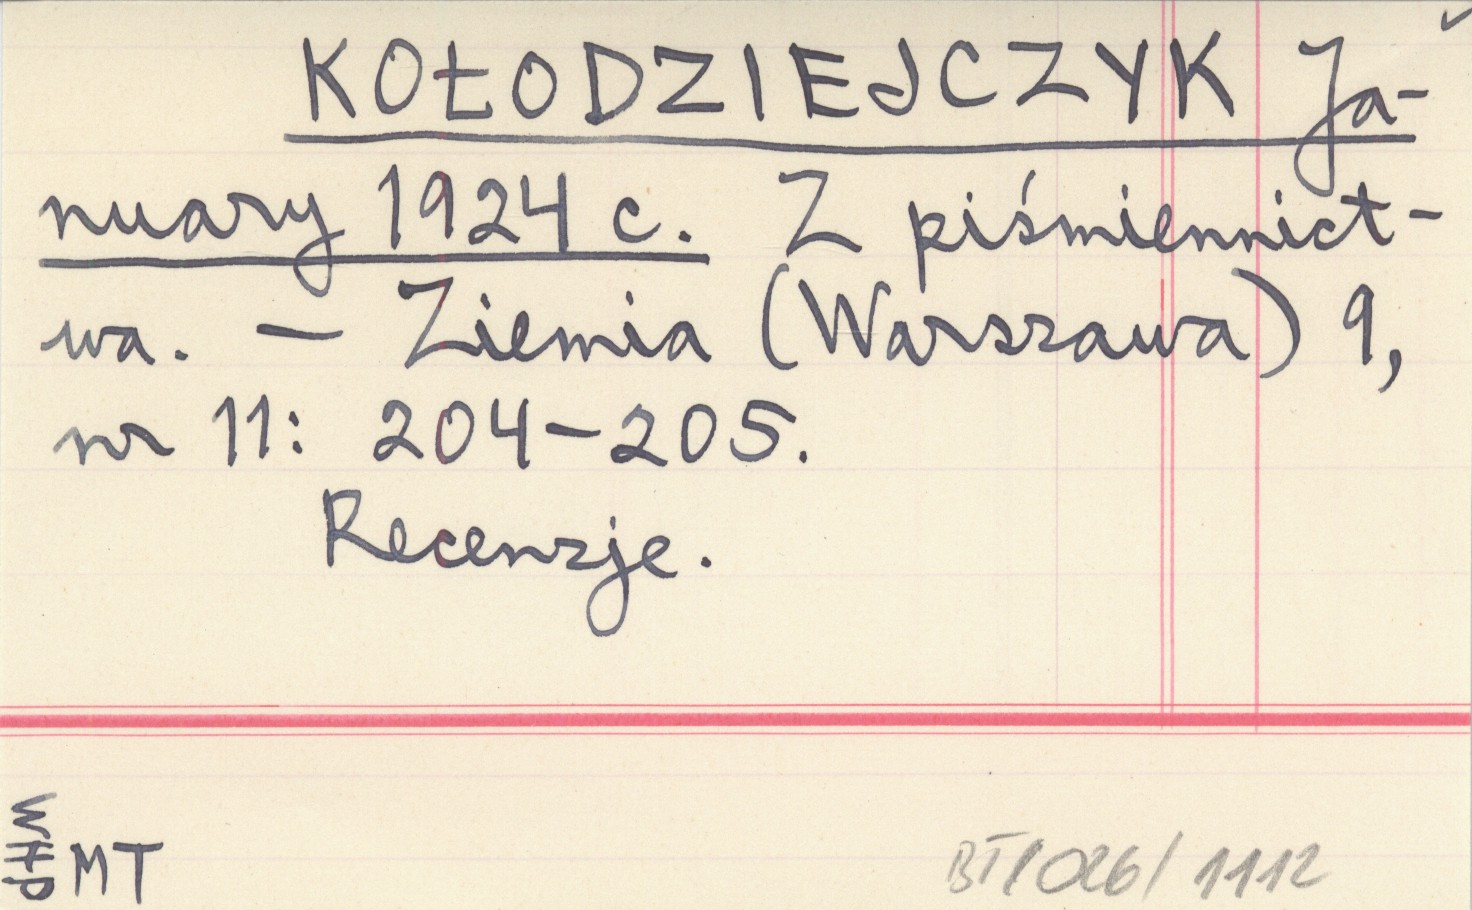 KOŁODZIEJCZYK Ja-
nuary 1924 c. Z piśmiennict-
wa. — Ziemia (Warszawa) 9,
nr 11: 204-205.
Recenzje.
MT
BT/026/1112